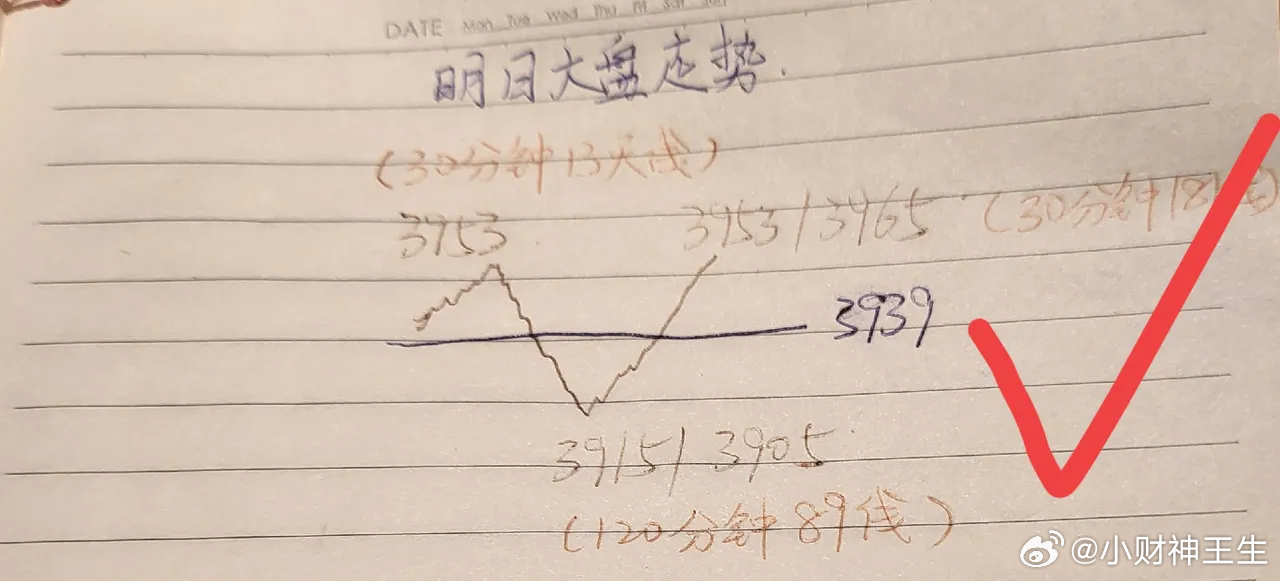 DATE Mon Tue Wed Thu Fri Sat Sun
明日大盘走势.
(30分钟13天线)
3953 3953/3965 (30分钟18线)
3939
3915/3905
(120分钟89线)
@小财神王生